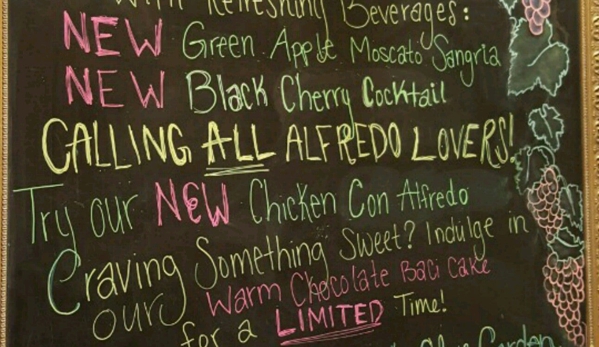 With Refreshing Beverages:
NEW Green Apple Moscato Sangria
NEW Black Cherry Cocktail
CALLING ALL ALFREDO LOVERS!
Try our NEW Chicken Con Alfredo
Craving Something Sweet? Indulge in
our Warm Chocolate Baci Cake
for a LIMITED Time!
Olive Garden